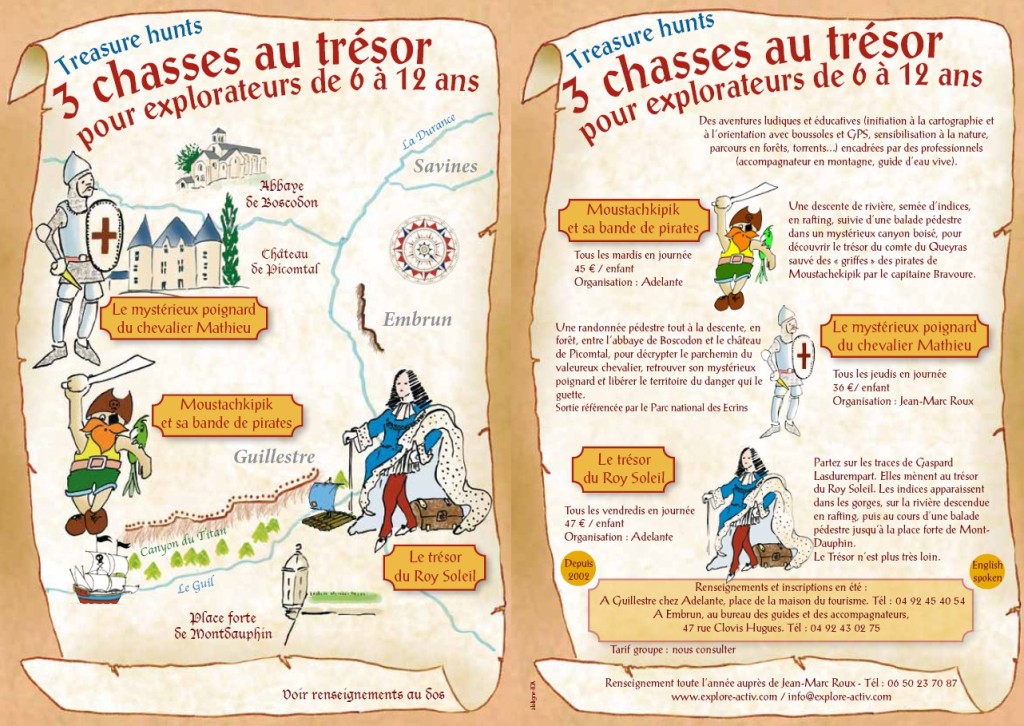 Treasure hunts
3 chasses au trésor
pour explorateurs de 6 à 12 ans
La Durance
Savines
Abbaye
de Boscodon
Château
de Picomtal
Le mystérieux poignard
du chevalier Mathieu
Embrun
Moustachkipik
et sa bande de pirates
Guillestre
Canyon du Titan
Le Guil
Le trésor
du Roy Soleil
Place forte
de Montdauphin
Voir renseignements au dos
Treasure hunts
3 chasses au trésor
pour explorateurs de 6 à 12 ans
Des aventures ludiques et éducatives (initiation à la cartographie et
à l'orientation avec boussoles et GPS, sensibilisation à la nature,
parcours en forêts, torrents...) encadrées par des professionnels
(accompagnateur en montagne, guide d'eau vive).
Moustachkipik
et sa bande de pirates
Tous les mardis en journée
45 € / enfant
Organisation : Adelante
Une descente de rivière, semée d'indices,
en rafting, suivie d'une balade pédestre
dans un mystérieux canyon boisé, pour
découvrir le trésor du comte du Queyras
sauvé des « griffes » des pirates de
Moustachekipik par le capitaine Bravoure.
Une randonnée pédestre tout à la descente, en
forêt, entre l'abbaye de Boscodon et le château
de Picomtal, pour décrypter le parchemin du
valeureux chevalier, retrouver son mystérieux
poignard et libérer le territoire du danger qui le
guette.
Sortie référencée par le Parc national des Ecrins
Le mystérieux poignard
du chevalier Mathieu
Tous les jeudis en journée
36 €/ enfant
Organisation : Jean-Marc Roux
Le trésor
du Roy Soleil
Tous les vendredis en journée
47 € / enfant
Organisation : Adelante
Partez sur les traces de Gaspard
Lasdurempart. Elles mènent au trésor
du Roy Soleil. Les indices apparaissent
dans les gorges, sur la rivière descendue
en rafting, puis au cours d'une balade
pédestre jusqu'à la place forte de Mont-
Dauphin.
Le Trésor n'est plus très loin.
Depuis
2002
English
spoken
Renseignements et inscriptions en été :
A Guillestre chez Adelante, place de la maison du tourisme. Tél : 04 92 45 40 54
A Embrun, au bureau des guides et des accompagnateurs,
47 rue Clovis Hugues. Tél : 04 92 43 02 75
Tarif groupe : nous consulter
Renseignement toute l'année auprès de Jean-Marc Roux - Tél : 06 50 23 70 87
www.explore-activ.com / info@explore-activ.com